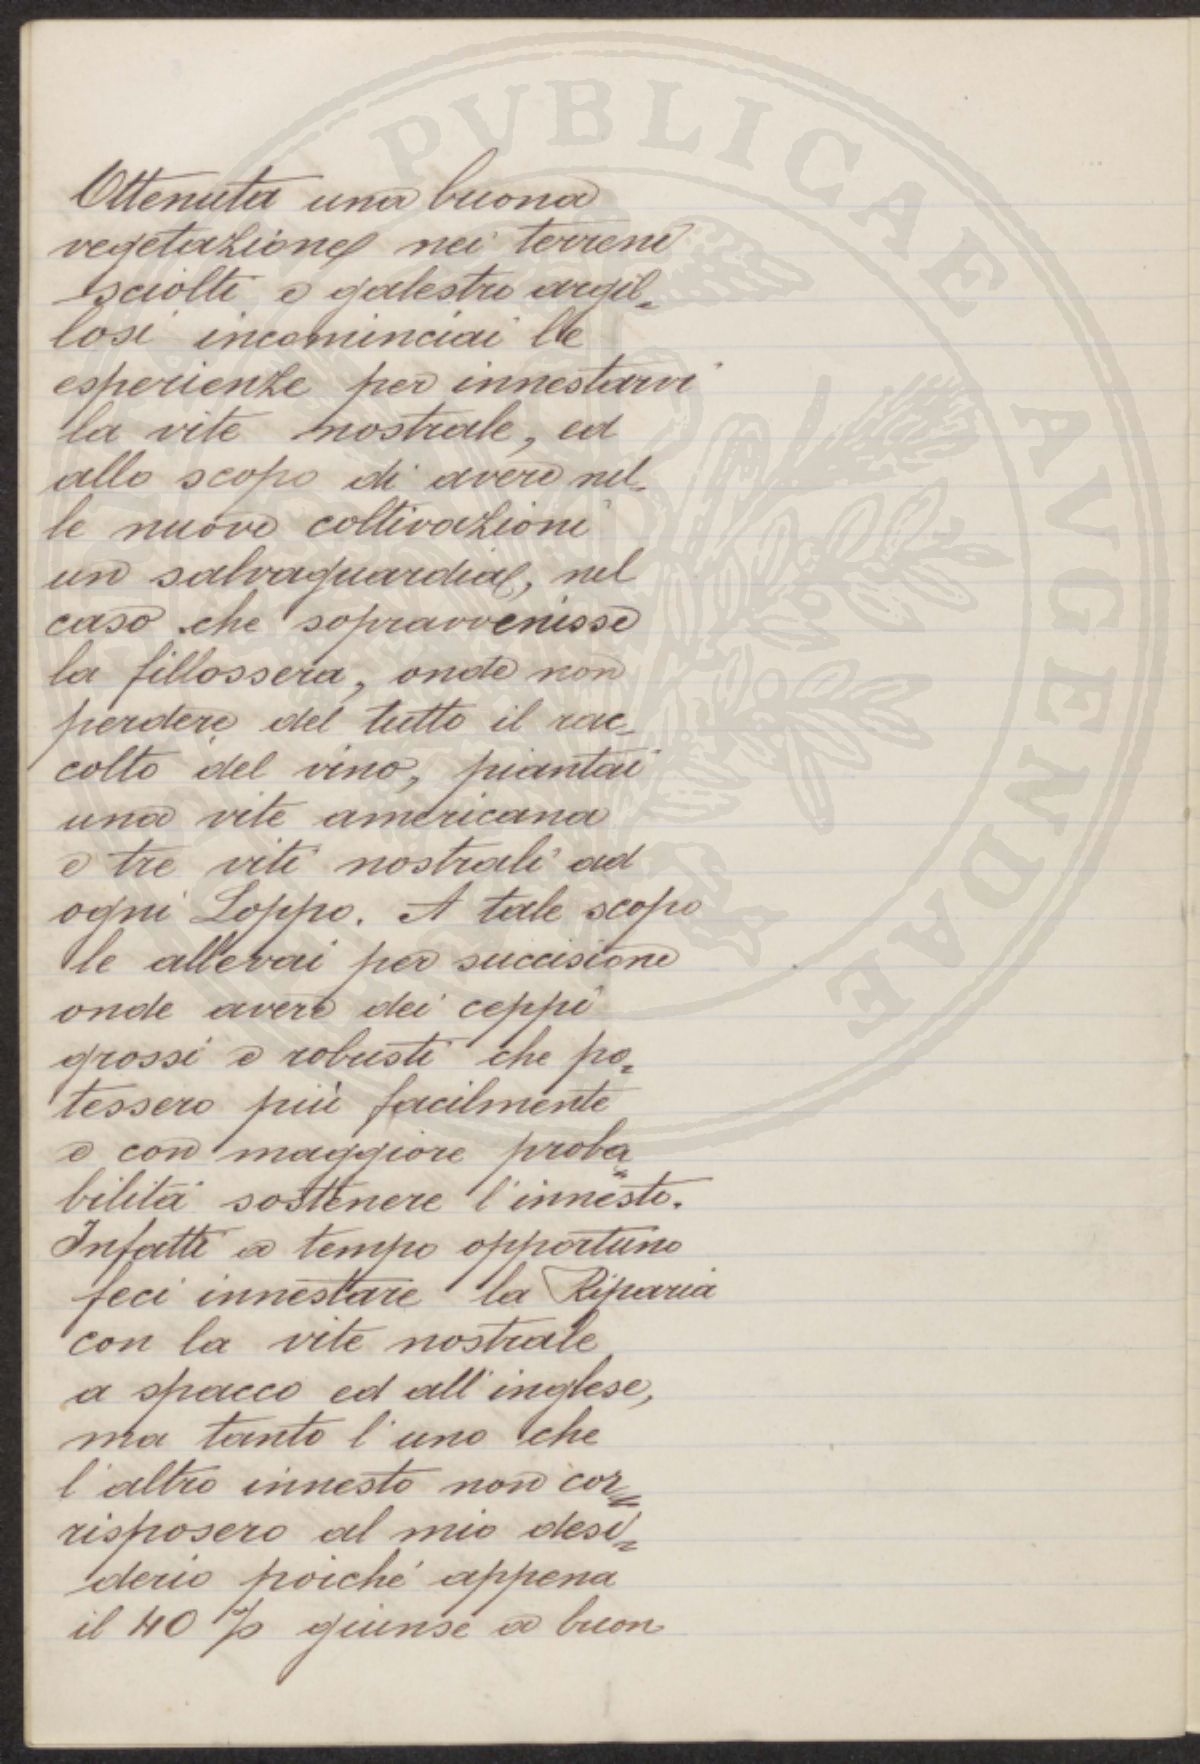 Ottenuta una buona
vegetazione nei terreni
sciolti e galestro argil=
losi incominciai le
esperienze per innestarvi
la vite nostrale, ed
allo scopo di avere nel=
le nuove coltivazioni
un salvaguardia, nel
caso che sopravvenisse
la fillossera, onde non
perdere del tutto il rac=
colto del vino, piantai
una vite americana
e tre viti nostrali ad
ogni Loppo. A tale scopo
le allevai per succisione
onde avere dei ceppi
grossi e robusti che po=
tessero più facilmente
e con maggiore proba=
bilità sostenere l'innesto.
Infatti a tempo opportuno
feci innestare la Riparia
con la vite nostrale
a spacco ed all'inglese,
ma tanto l'uno che
l'altro innesto non cor=
risposero al mio desi=
derio poiché appena
il 40 % giunse a buon
PVBLICAE AVGENDAE